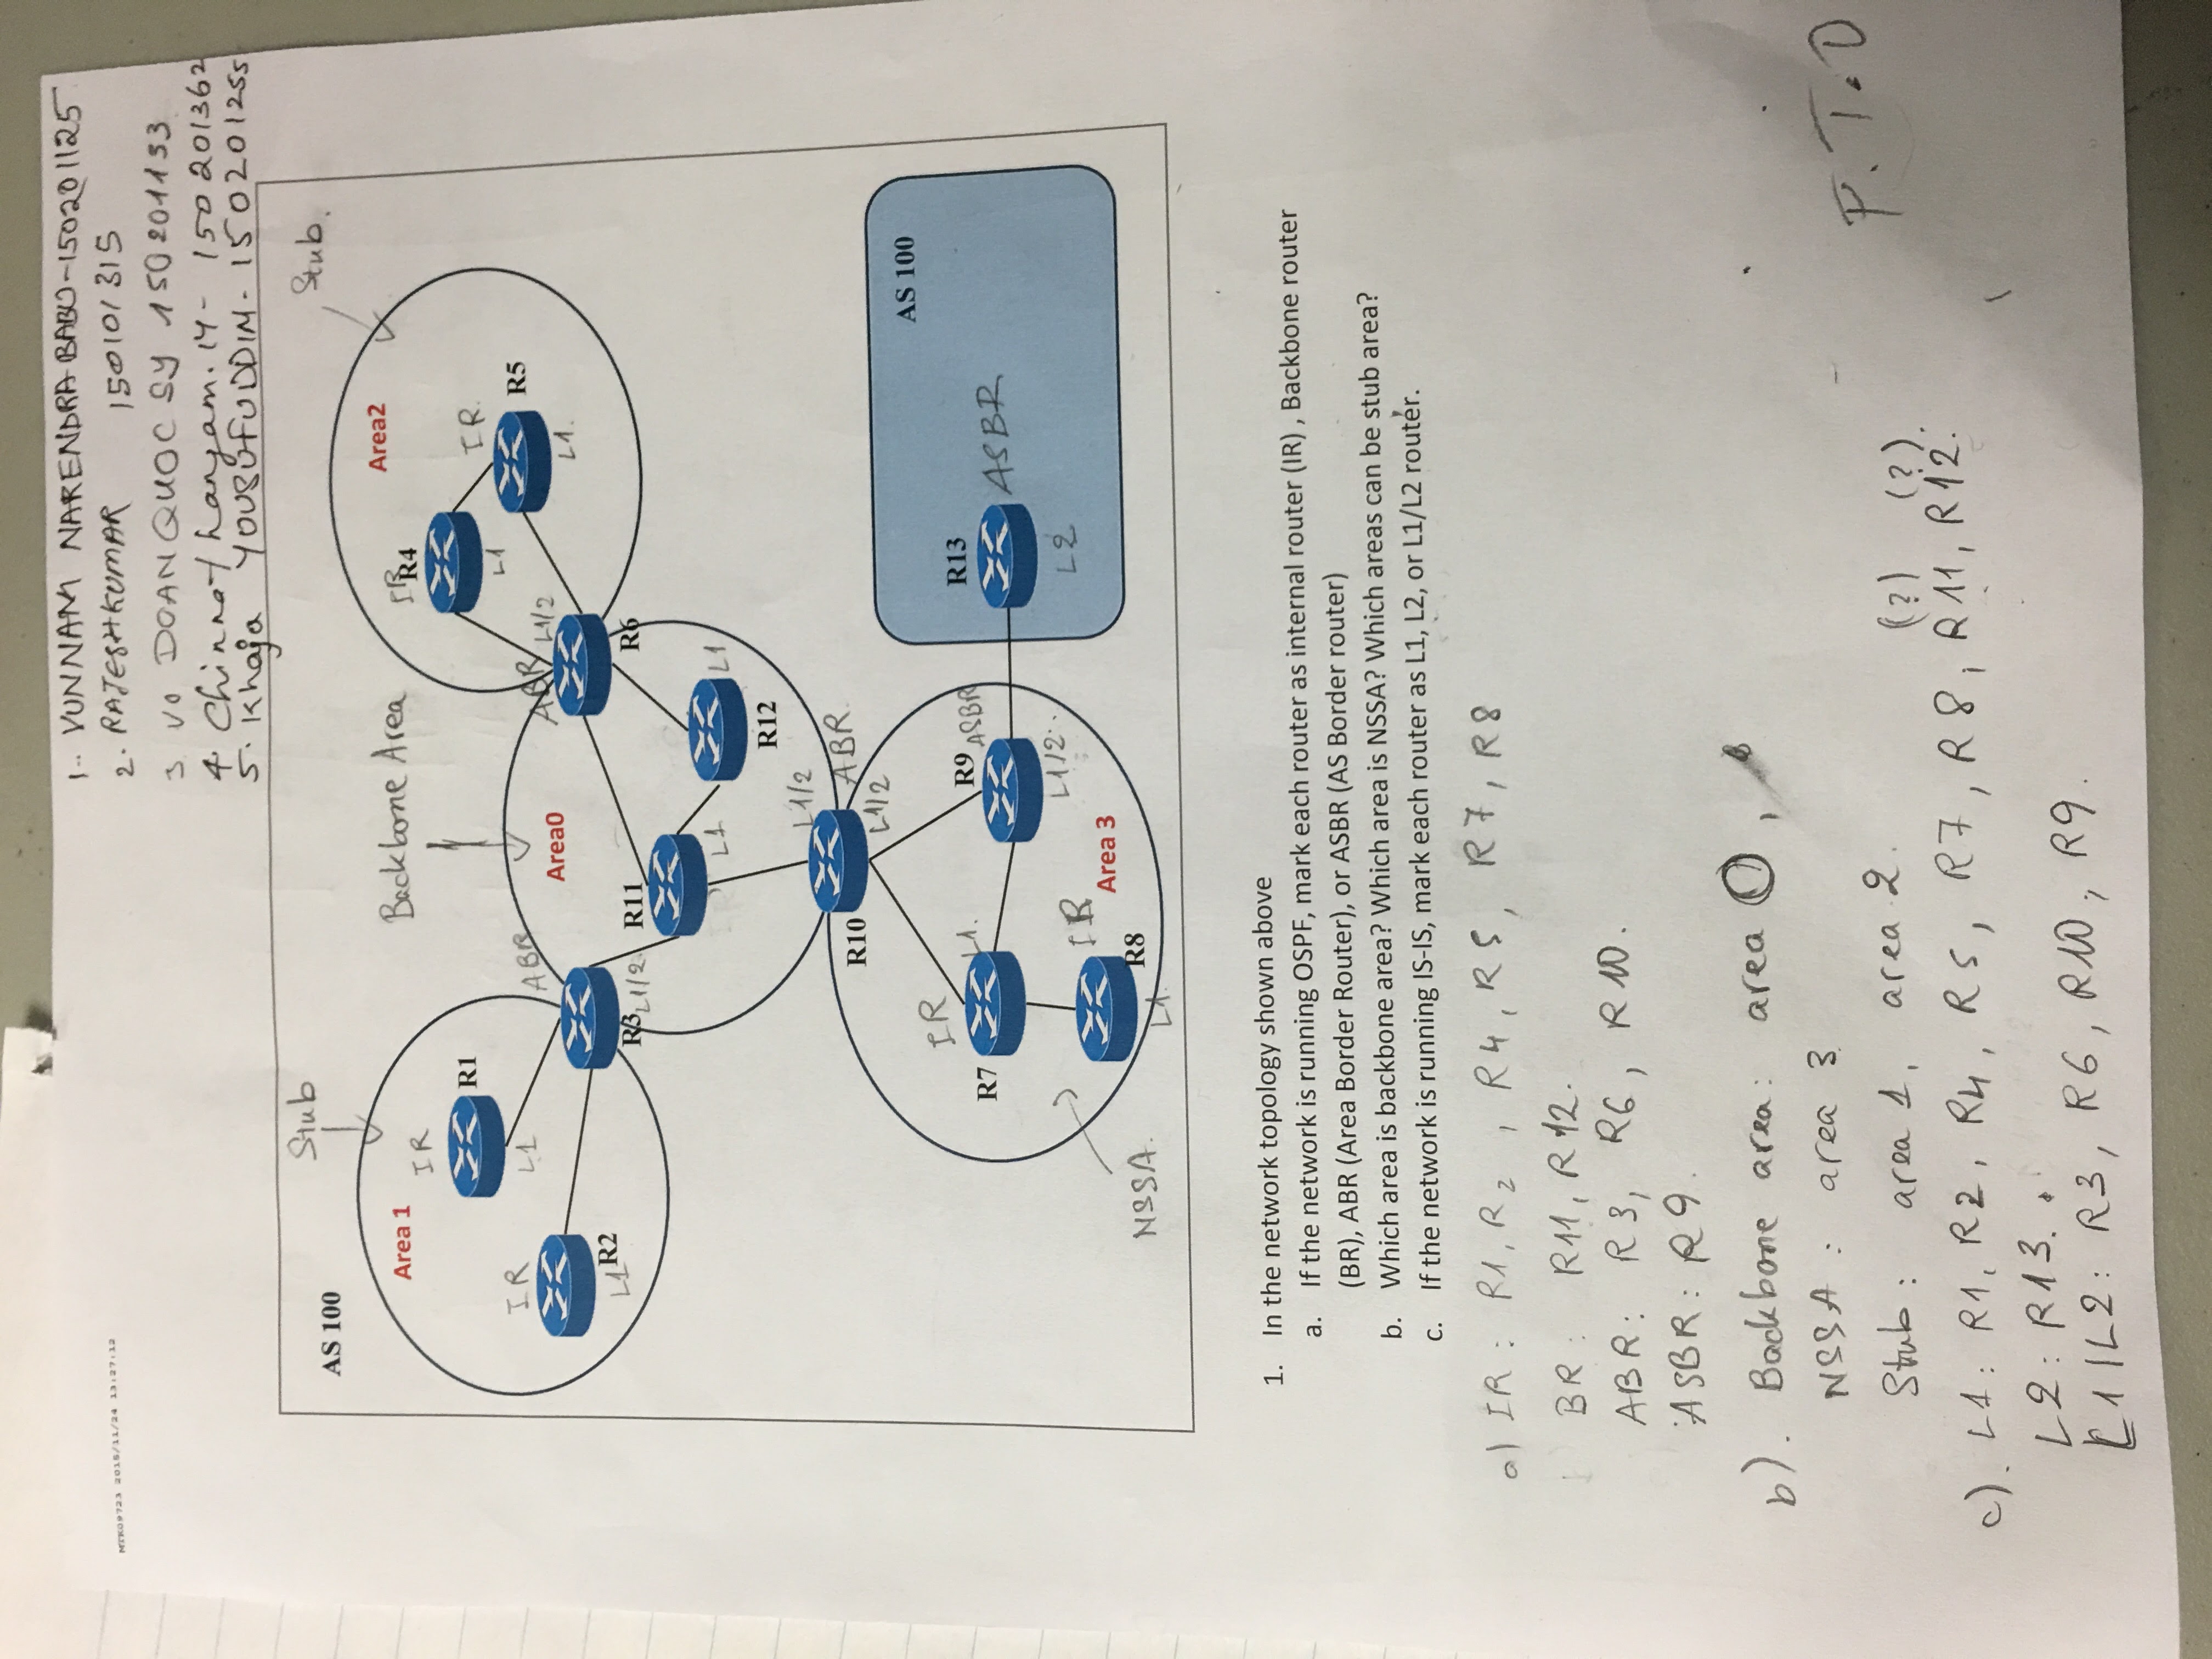 MTK09723 2015/11/24 13:27:12
1. VUNNAM NARENDRA BABU-150201125
2. RAJESHKUMAR 150101315
3 VO DOAN QUOC SY 150201133
4. Chinnathangam. M - 150201362
5. Khaja YOUSUFUDDIN - 150201255
Stub
Stub.
AS 100
Area 1
Backbone Area
Area2
IR
R4
IR
R1
IR
R5
L1
L1
IR
ABR
Area0
ABR
L1/2
L1.
L1
R2
R3
L1/2.
R11
R6
L1
L1
R12
L1/2
R10
ABR.
L1/2
AS 100
IR
R7
L1.
R9
ASBR
R13
ASBR
L1/2.
L2
IR
Area 3
NSSA.
R8
L1.
1. In the network topology shown above
a. If the network is running OSPF, mark each router as internal router (IR) , Backbone router
(BR), ABR (Area Border Router), or ASBR (AS Border router)
b. Which area is backbone area? Which area is NSSA? Which areas can be stub area?
c. If the network is running IS-IS, mark each router as L1, L2, or L1/L2 router.
a) IR : R1, R2 , R4, R5, R7, R8
BR : R11, R12.
ABR: R3, R6, R10.
ASBR: R9.
b). Backbone area: area 0,
NSSA : area 3
P.T.O
Stub : area 1, area 2.
(?) (?).
c). L1: R1, R2, R4, R5, R7, R8, R11, R12.
L2: R13.
L1/L2: R3, R6, R10, R9.